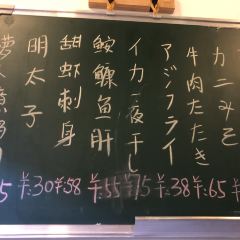 カニみそ
牛肉たたき
¥65
アジフライ
¥38
イカ一夜干し
¥75
鮟鱇鱼肝
¥55
甜虾刺身
¥58
明太子
¥30